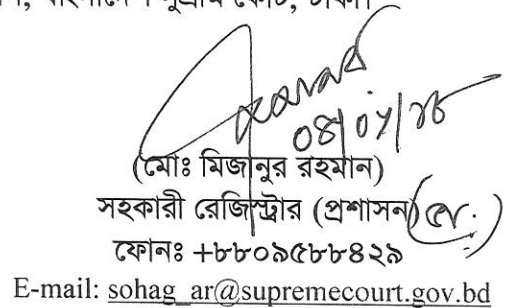 বাংলাদেশ সুপ্রীম কোর্ট, ঢাকা।
(মোঃ মিজানুর রহমান)
সহকারী রেজিস্ট্রার (প্রশাসন)
ফোনঃ +৮৮০৯৫৮৮৪২৯
E-mail: sohag_ar@supremecourt.gov.bd